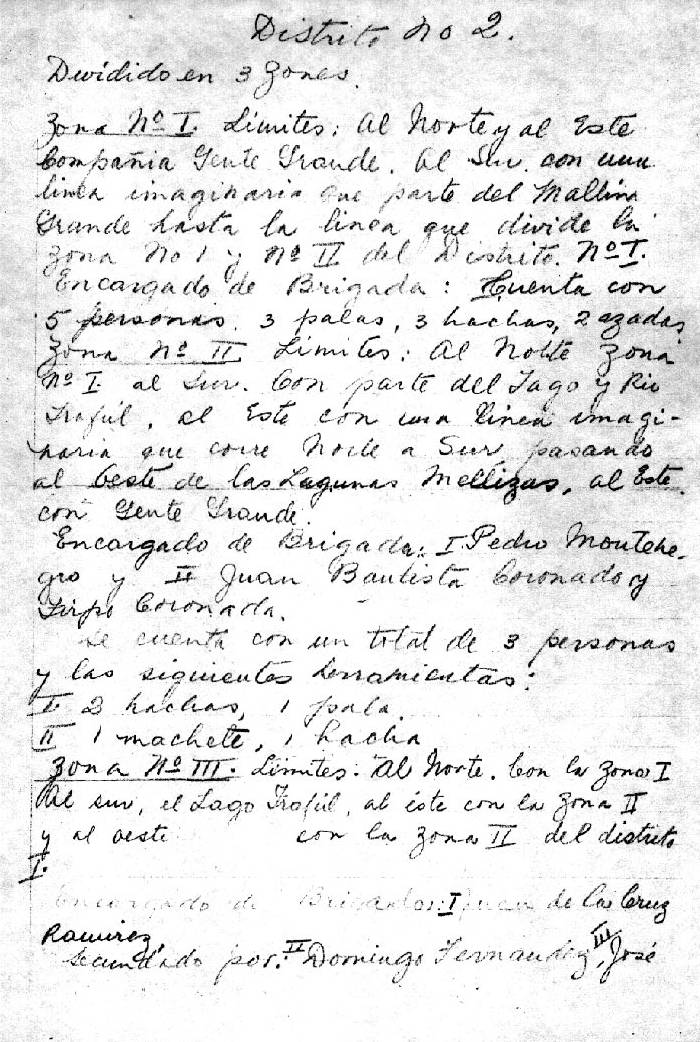 Distrito No 2.
Dividido en 3 Zones.
Zona Nº I. Límites: Al Norte y al Este
Compañia Gente Grande. Al Sur con una
linea imaginaria que parte del Mallin
Grande hasta la linea que divide la
zona No 1 y Nº II del Distrito. Nº I.
Encargado de Brigada: Cuenta con
5 personas. 3 palas, 3 hachas, 2 azadas
Zona Nº II Límites: Al Norte Zona
Nº I. al Sur. Con parte del Lago y Rio
Traful, al Este con una linea imagi-
naria que corre Norte a Sur pasando
al Oeste de las Lagunas Mellizas, al Este
con Gente Grande.
Encargado de Brigada: I. Pedro Montene-
gro y II Juan Bautista Coronado y
Firpo Coronado.
Se cuenta con un total de 3 personas
y las siguientes herramientas:
I 2 hachas, 1 pala
II 1 machete, 1 hacha
Zona Nº III. Límites: Al Norte. Con la zona I
Al sur, el Lago Traful, al éste con la Zona II
y al oeste con la Zona II del distrito
I.
Encargado de Brigadas: I Juan de la Cruz
Ramirez,
Secundado por: II Domingo Fernandez, III José